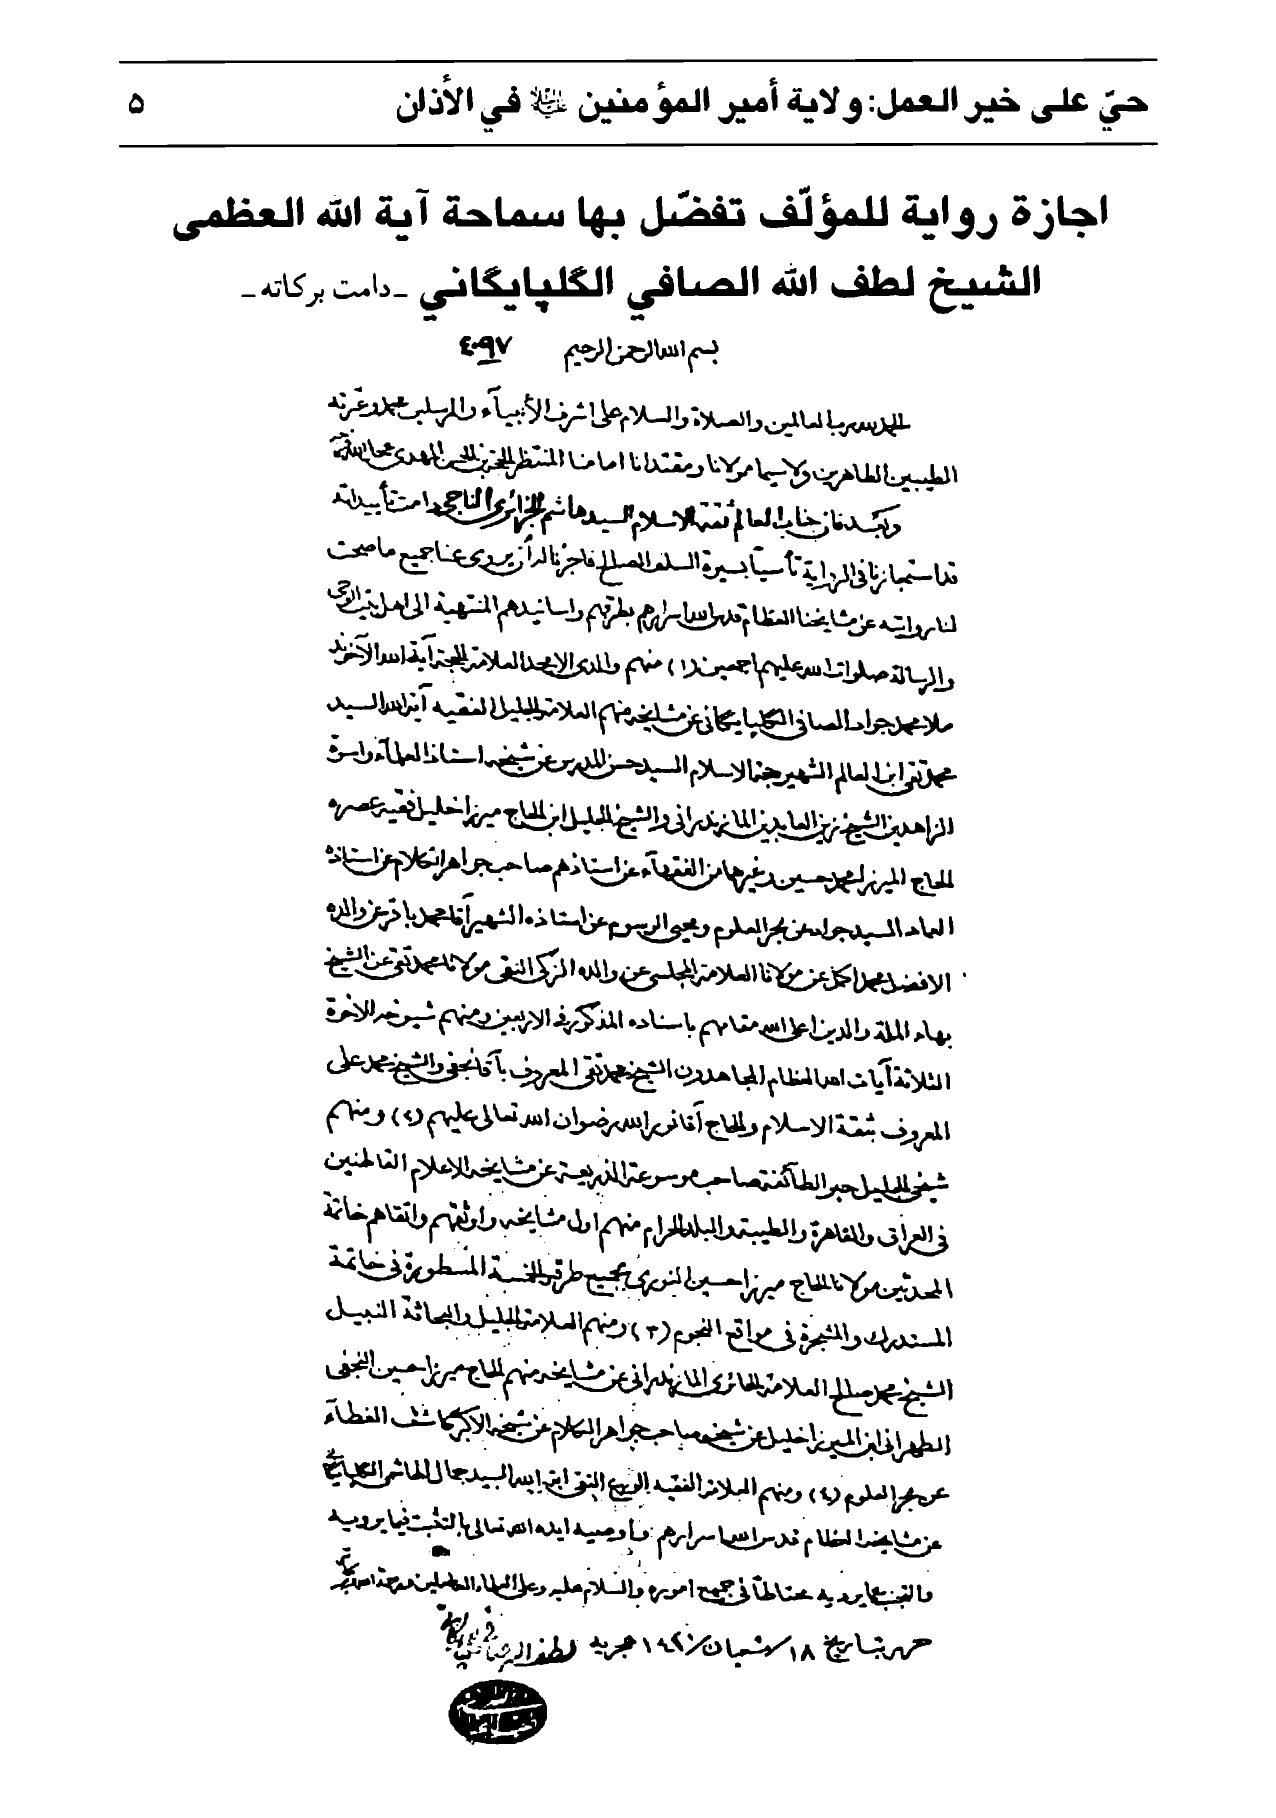 حيّ على خير العمل: ولاية أمير المؤمنين عليه السلام في الأذان ۵
اجازة رواية للمؤلّف تفضّل بها سماحة آية الله العظمى
الشيخ لطف الله الصافي الگلپايگاني _دامت بركاته_
بسم الله الرحمن الرحيم ٤٠٩٧
الحمد لله رب العالمين والصلاة والسلام على اشرف الأنبيآء والمرسلين محمد وعترته
الطيبين الطاهرين ولا سيما مولانا ومقتدانا امامنا المنتظر الحجة بن الحسن المهدى عجل الله فرجه
وبَعد فان جناب العالم ثقة الاسلام السيد هاشم الجزائرى الناجي دامت تأييداته
قد استجازنا في الرواية تأسيا بسيرة السلف الصالح فاجزنا له أن يروى عنا جميع ما صحت
لنا روايته عن مشايخنا العظام قدس الله اسرارهم بطرقهم واسانيدهم المنتهية الى اهل بيت الوحي
والرسالة صلوات الله عليهم اجمعين (١) منهم والدى الامجد العلامة الحجة آية الله الآخوند
ملا محمد جواد الصافي الگلپايگاني عن مشايخه منهم العلامة الجليل الفقيه آية الله السيد
محمد تقي ابن العالم الشهير حجة الاسلام السيد حسن المدرس عن شيخه استاذ العلمآء واسوة
الزاهدين الشيخ زين العابدين المازندراني والشيخ الجليل ابن الحاج ميرزا خليل فقيه عصره
الحاج الميرزا محمد حسين وغيرها من الفقهآء عن استاذهم صاحب جواهر الكلام عن استاذه
العماد السيد جواد عن بحر العلوم ومحيى الرسوم عن استاذه الشهير آقا محمد باقر عن والده
الافضل محمد اكمل عن مولانا العلامة المجلسي عن والده الزكى النقى مولانا محمد تقي عن الشيخ
بهاء الملة والدين اعلى الله مقامهم باسناده المذكور في الاربعين ومنهم شيوخه الاخوة
الثلاثة آيات الله العظام المجاهدون الشيخ محمد تقي المعروف بآقا نجفي والشيخ محمد على
المعروف بثقة الاسلام والحاج آقا نور الله رضوان الله تعالى عليهم (٢) ومنهم
شيخي الجليل حبر الطائفة صاحب موسوعة الذريعة عن مشايخه الاعلام القاطنين
في العراق والقاهرة والطيبة والبلد الحرام منهم اول مشايخه واوثقهم واتقاهم خاتمة
المحدثين مولانا الحاج ميرزا حسين النوري بجميع طرقه الخمسة المسطورة في خاتمة
المستدرك والمشجرة في مواقع النجوم (٣) ومنهم العلامة الجليل والبحاثة النبيل
الشيخ محمد صالح العلامة الحائرى المازندراني عن مشايخه منهم الحاج ميرزا حسين النجفي
الطهراني ابن الميرزا خليل عن شيخه صاحب جواهر الكلام عن شيخه الاكبر كاشف الغطآء
عن بحر العلوم (٤) ومنهم العلامة الفقيه الورع التقى آية الله السيد جمال الهاشمى الگلپايگاني
عن مشايخه العظام قدس الله اسرارهم وأوصيه ايده الله تعالى بالتثبت فيما يرويه
والتجنب عما يريبه محتاطاً في جميع اموره والسلام عليه وعلى العلماء العاملين ورحمة الله وبركاته
حرر بتاريخ ١٨/شعبان/١٤٢٠ هجرية لطف الله الصافي